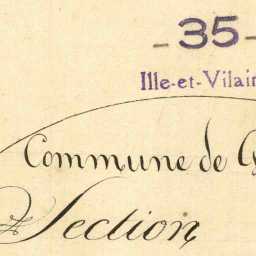 - 35 -
Ille-et-Vilain
Commune de
Section